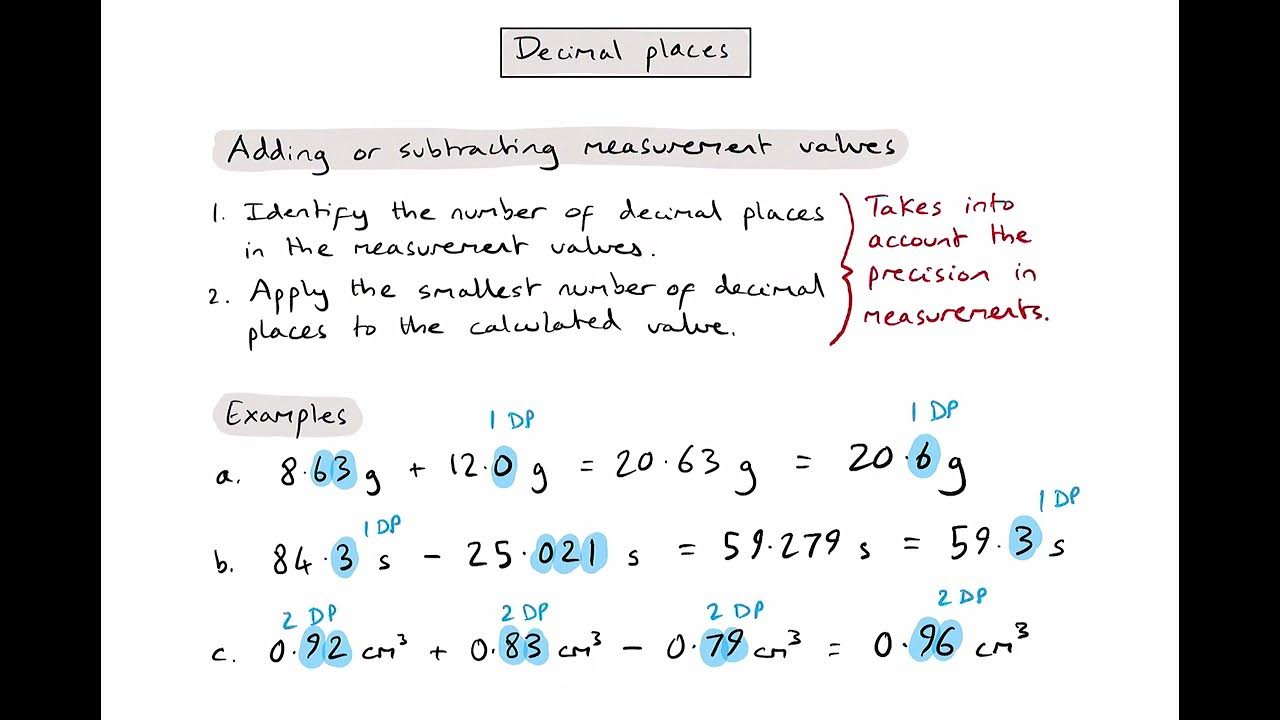 Decimal places
Adding or subtracting measurement values
1. Identify the number of decimal places
in the measurement values.
2. Apply the smallest number of decimal
places to the calculated value.
Takes into
account the
precision in
measurements.
Examples
1 DP 1 DP
a. 8.63 g + 12.0 g = 20.63 g = 20.6 g
1 DP 1 DP
b. 84.3 s - 25.021 s = 59.279 s = 59.3 s
2 DP 2 DP 2 DP 2 DP
c. 0.92 cm³ + 0.83 cm³ - 0.79 cm³ = 0.96 cm³